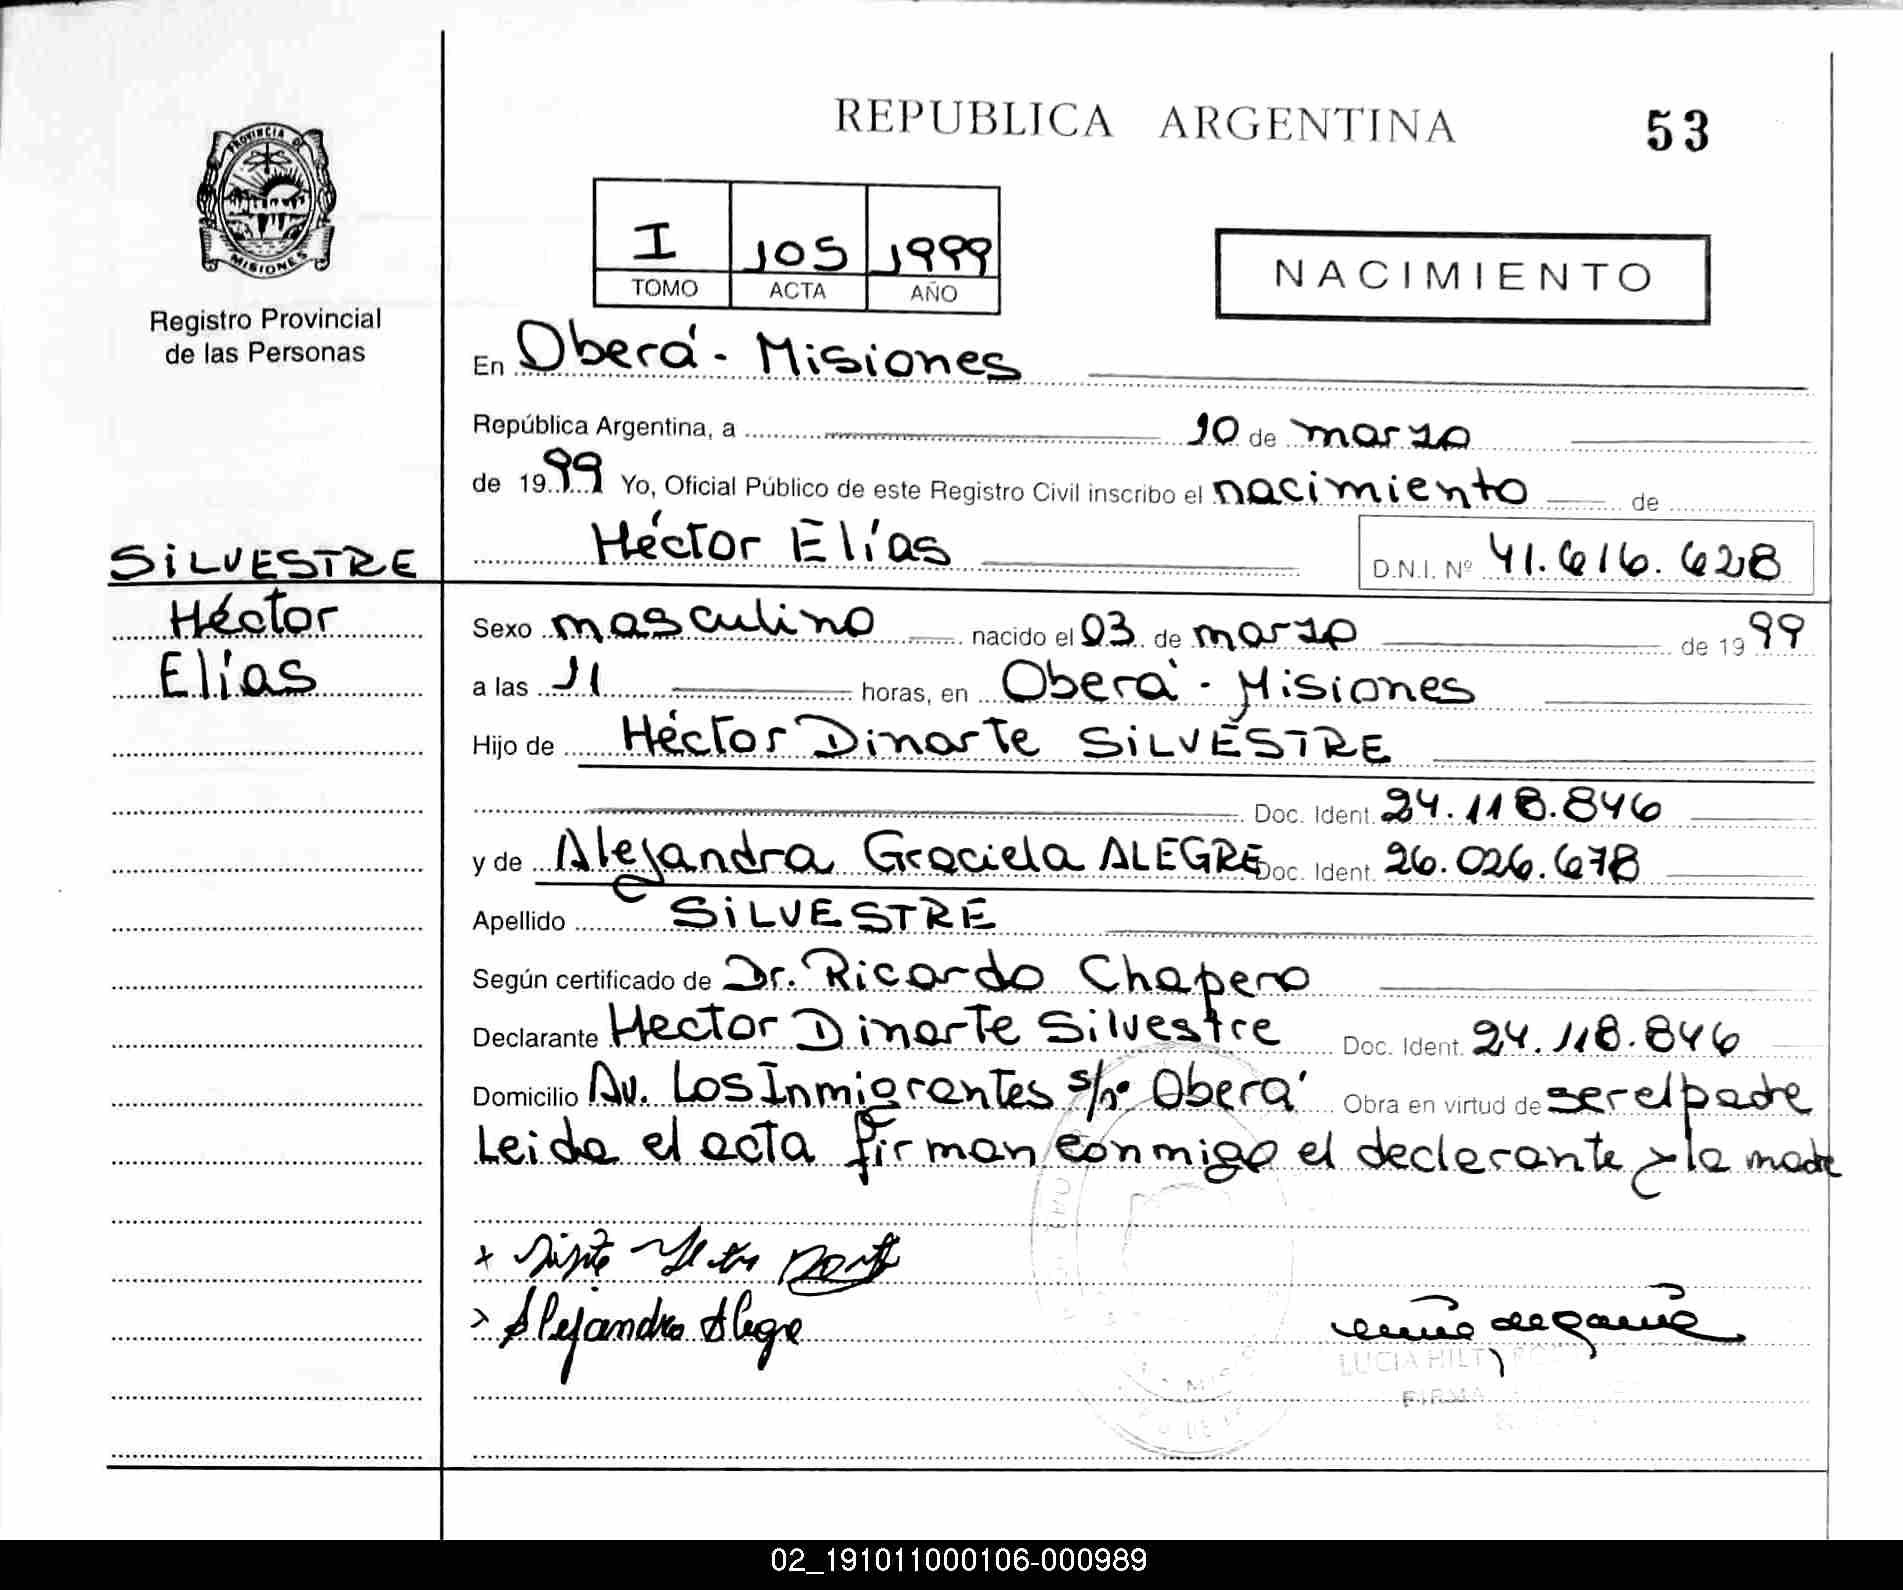 REPUBLICA ARGENTINA
53
PROVINCIA DE
MISIONES
Registro Provincial
de las Personas
I 105 1999
TOMO ACTA AÑO
NACIMIENTO
En Oberá - Misiones
República Argentina, a 10 de marzo
de 1999 Yo, Oficial Público de este Registro Civil inscribo el nacimiento de
Héctor Elías D.N.I. Nº 41.616.628
SILVESTRE
Héctor
Elías
Sexo masculino nacido el 03 de marzo de 1999
a las 11 horas, en Oberá - Misiones
Hijo de Héctor Dinarte SILVESTRE
Doc. Ident. 24.118.846
y de Alejandra Graciela ALEGRE Doc. Ident. 26.026.678
Apellido SILVESTRE
Según certificado de Dr. Ricardo Chapero
Declarante Hector Dinarte Silvestre Doc. Ident. 24.118.846
Domicilio Av. Los Inmigrantes s/nº Oberá Obra en virtud de ser el padre
Leida el acta firman conmigo el declarante y la madre
Alejandra Alegre
LUCIA
FIRMA
02_191011000106-000989